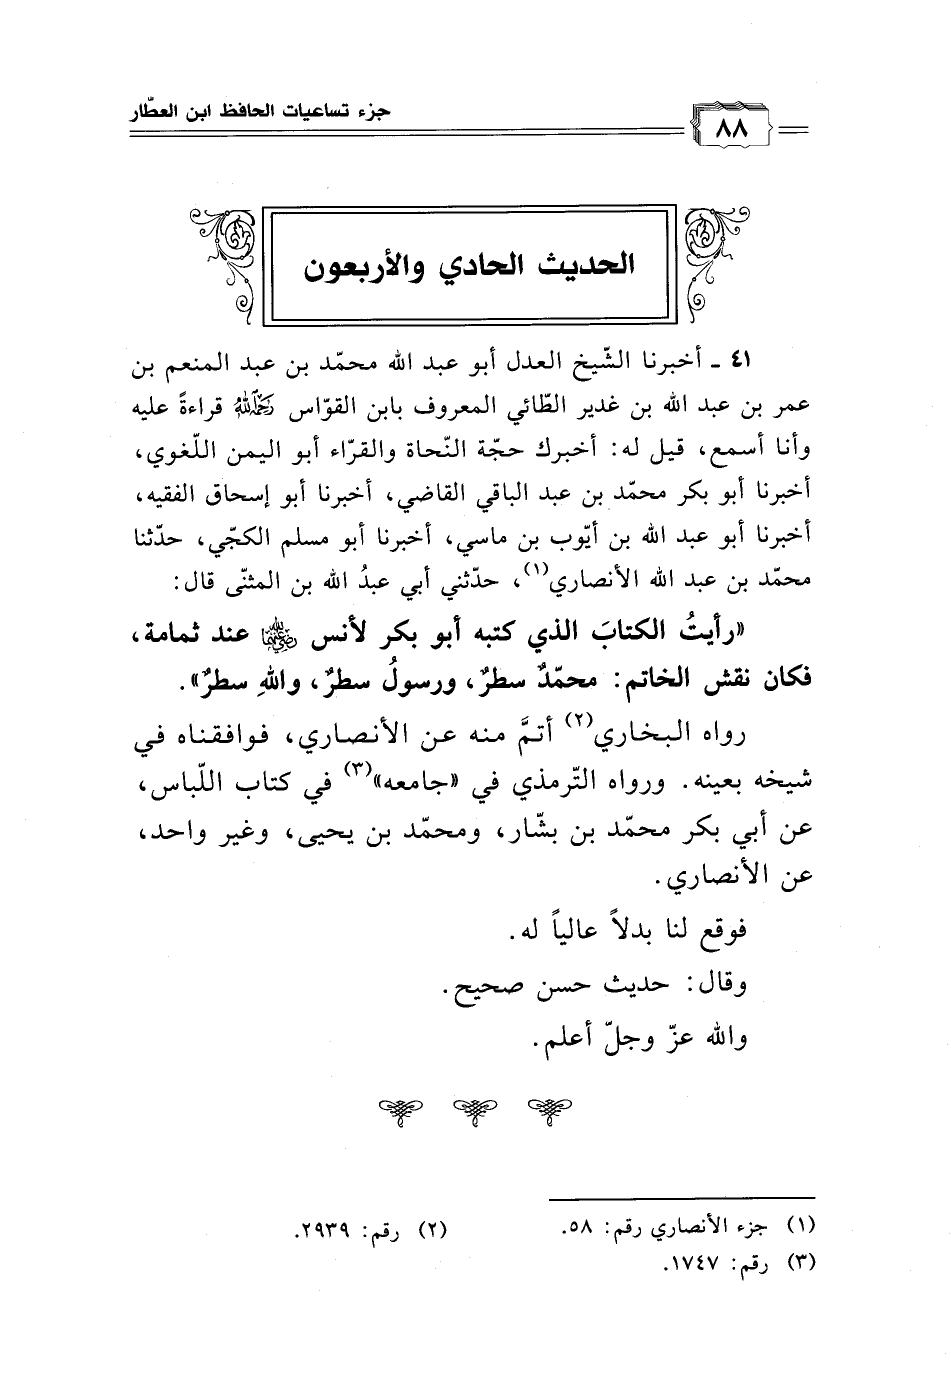 ٨٨
جزء تساعيات الحافظ ابن العطّار
الحديث الحادي والأربعون
٤١ ـ أخبرنا الشّيخ العدل أبو عبد الله محمّد بن عبد المنعم بن
عمر بن عبد الله بن غدير الطّائي المعروف بابن القوّاس رَحِمَهُ اللهُ قراءةً عليه
وأنا أسمع، قيل له: أخبرك حجّة النّحاة والقرّاء أبو اليمن اللّغوي،
أخبرنا أبو بكر محمّد بن عبد الباقي القاضي، أخبرنا أبو إسحاق الفقيه،
أخبرنا أبو عبد الله بن أيّوب بن ماسي، أخبرنا أبو مسلم الكجّي، حدّثنا
محمّد بن عبد الله الأنصاري(١)، حدّثني أبي عبدُ الله بن المثنّى قال:
«رأيتُ الكتابَ الذي كتبه أبو بكر لأنس رضي الله عنهما عند ثمامة،
فكان نقش الخاتم: محمّدٌ سطرٌ، ورسولُ سطرٌ، واللهِ سطرٌ».
رواه البخاري(٢) أتمَّ منه عن الأنصاري، فوافقناه في
شيخه بعينه. ورواه التّرمذي في «جامعه»(٣) في كتاب اللّباس،
عن أبي بكر محمّد بن بشّار، ومحمّد بن يحيى، وغير واحد،
عن الأنصاري.
فوقع لنا بدلاً عالياً له.
وقال: حديث حسن صحيح.
والله عزّ وجلّ أعلم.
(١) جزء الأنصاري رقم: ٥٨. (٢) رقم: ٢٩٣٩.
(٣) رقم: ١٧٤٧.